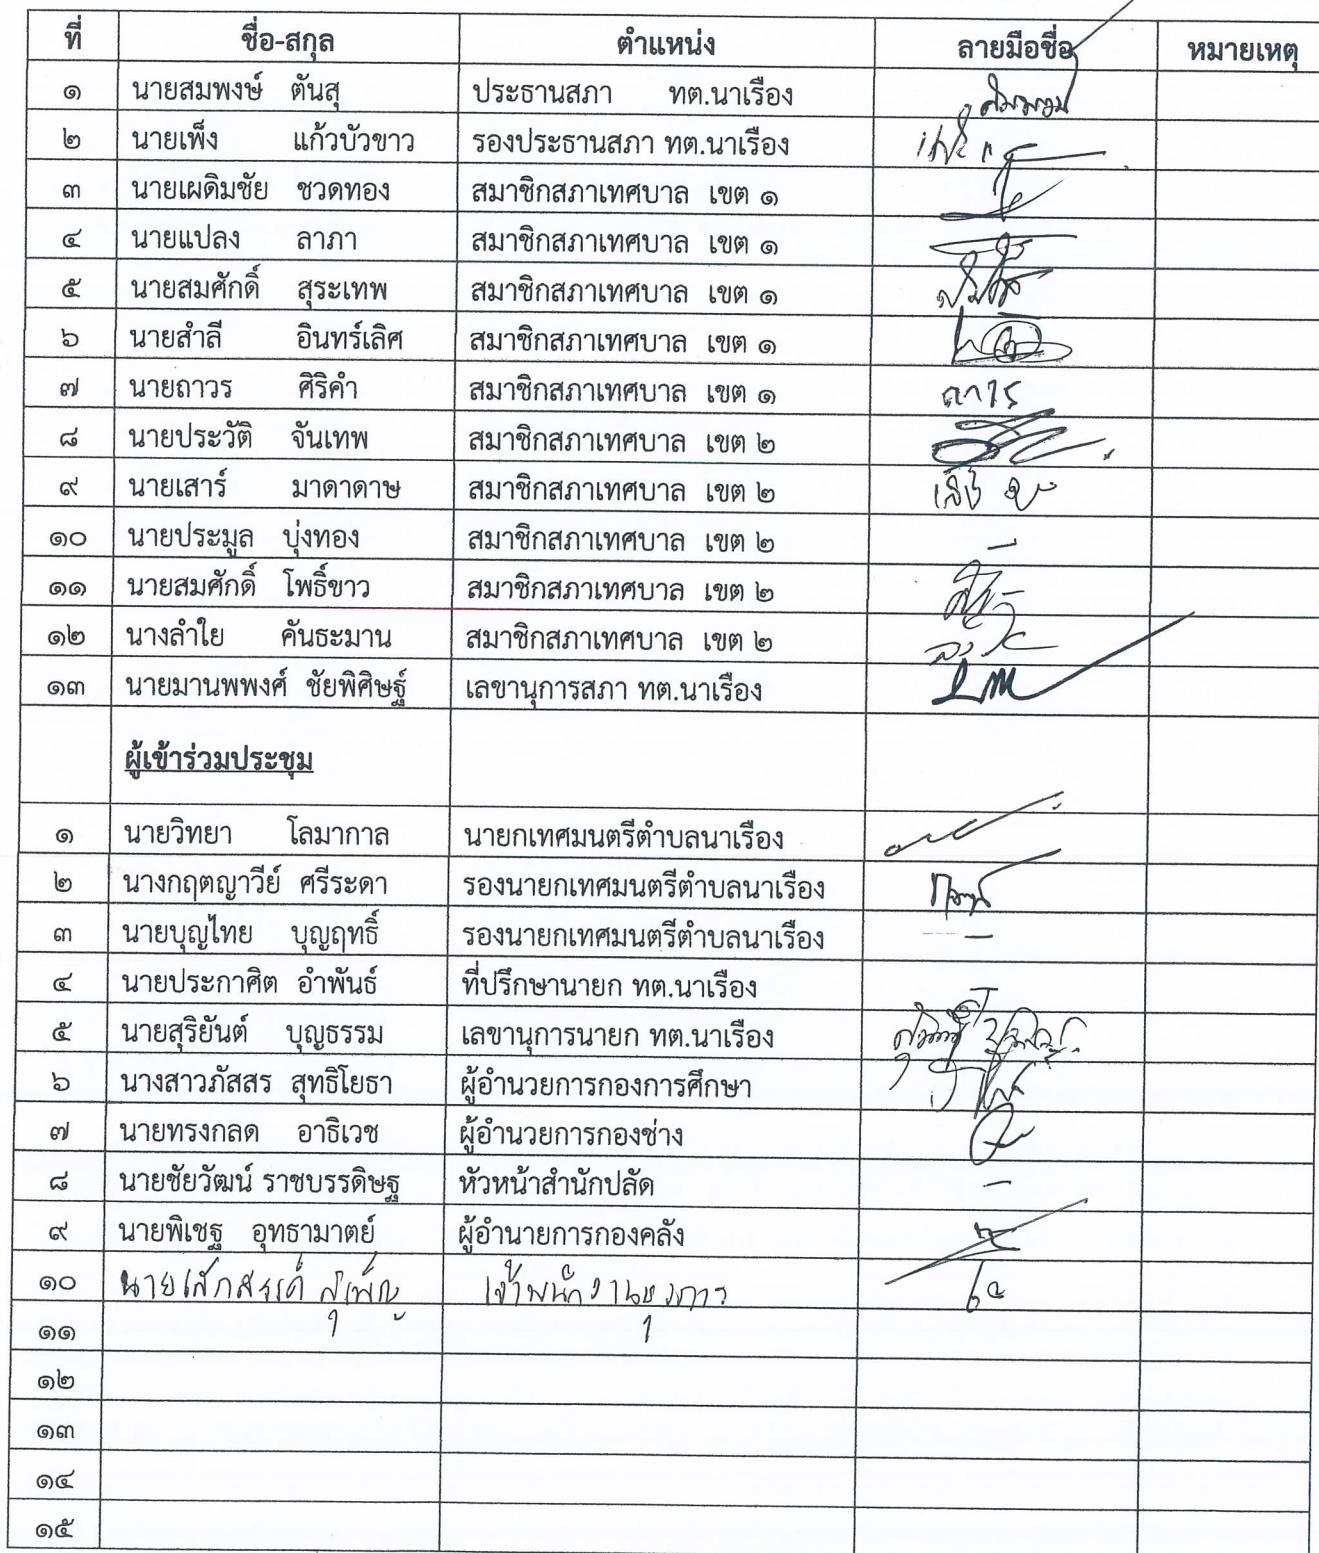 ที่ ชื่อ-สกุล ตำแหน่ง ลายมือชื่อ หมายเหตุ
๑ นายสมพงษ์ ตันสุ ประธานสภา ทต.นาเรือง
๒ นายเพ็ง แก้วบัวขาว รองประธานสภา ทต.นาเรือง
๓ นายเผดิมชัย ชวดทอง สมาชิกสภาเทศบาล เขต ๑
๔ นายแปลง ลาภา สมาชิกสภาเทศบาล เขต ๑
๕ นายสมศักดิ์ สุระเทพ สมาชิกสภาเทศบาล เขต ๑
๖ นายสำลี อินทร์เลิศ สมาชิกสภาเทศบาล เขต ๑
๗ นายถาวร ศิริคำ สมาชิกสภาเทศบาล เขต ๑ ถาวร
๘ นายประวัติ จันเทพ สมาชิกสภาเทศบาล เขต ๒
๙ นายเสาร์ มาดาดาษ สมาชิกสภาเทศบาล เขต ๒
๑๐ นายประมูล บุ่งทอง สมาชิกสภาเทศบาล เขต ๒ -
๑๑ นายสมศักดิ์ โพธิ์ขาว สมาชิกสภาเทศบาล เขต ๒
๑๒ นางลำใย คันธะมาน สมาชิกสภาเทศบาล เขต ๒
๑๓ นายมานพพงศ์ ชัยพิศิษฐ์ เลขานุการสภา ทต.นาเรือง
ผู้เข้าร่วมประชุม
๑ นายวิทยา โลมากาล นายกเทศมนตรีตำบลนาเรือง
๒ นางกฤตญาวีย์ ศรีระดา รองนายกเทศมนตรีตำบลนาเรือง
๓ นายบุญไทย บุญฤทธิ์ รองนายกเทศมนตรีตำบลนาเรือง -
๔ นายประกาศิต อำพันธ์ ที่ปรึกษานายก ทต.นาเรือง
๕ นายสุริยันต์ บุญธรรม เลขานุการนายก ทต.นาเรือง
๖ นางสาวภัสสร สุทธิโยธา ผู้อำนวยการกองการศึกษา
๗ นายทรงกลด อาธิเวช ผู้อำนวยการกองช่าง
๘ นายชัยวัฒน์ ราชบรรดิษฐ หัวหน้าสำนักปลัด -
๙ นายพิเชฐ อุทธามาตย์ ผู้อำนายการกองคลัง
๑๐ นายเสกสรรค์ เจ้าพนักงานธุรการ
๑๑
๑๒
๑๓
๑๔
๑๕